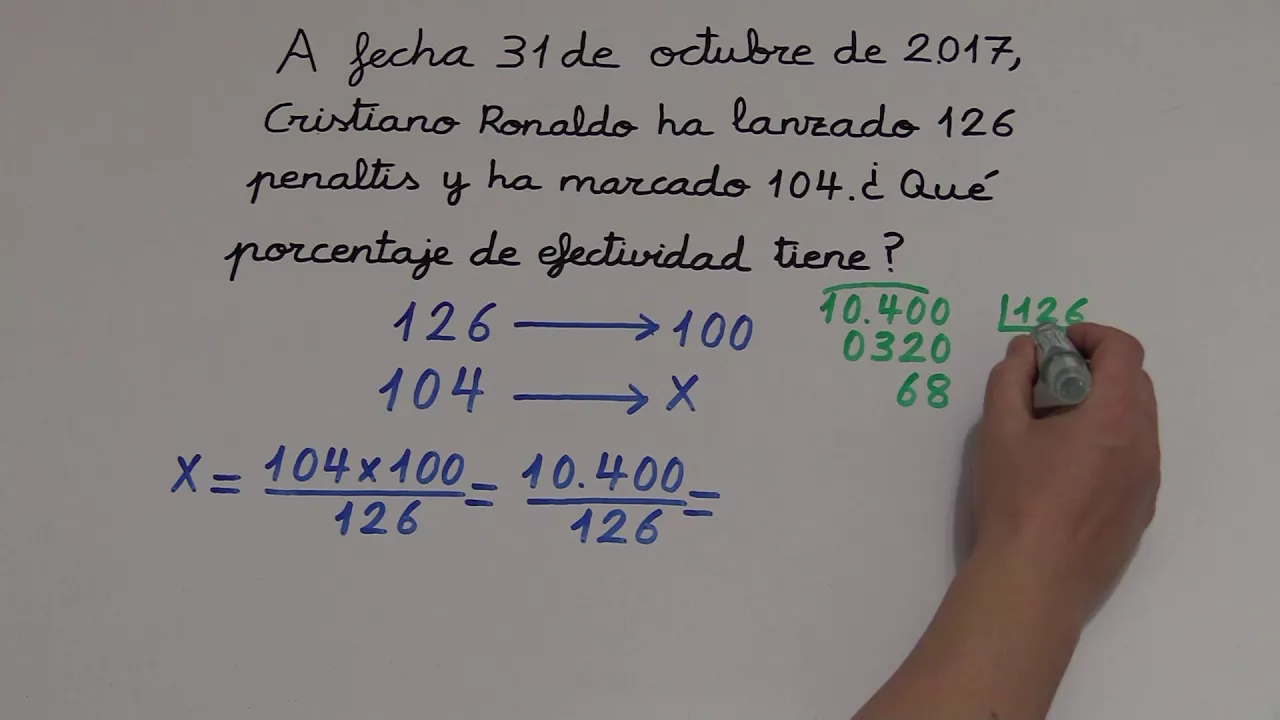 A fecha 31 de octubre de 2.017,
Cristiano Ronaldo ha lanzado 126
penaltis y ha marcado 104. ¿Qué
porcentaje de efectividad tiene?
126 → 100
104 → X
10.400 126
0320
68
X = 104x100/126 = 10.400/126 =